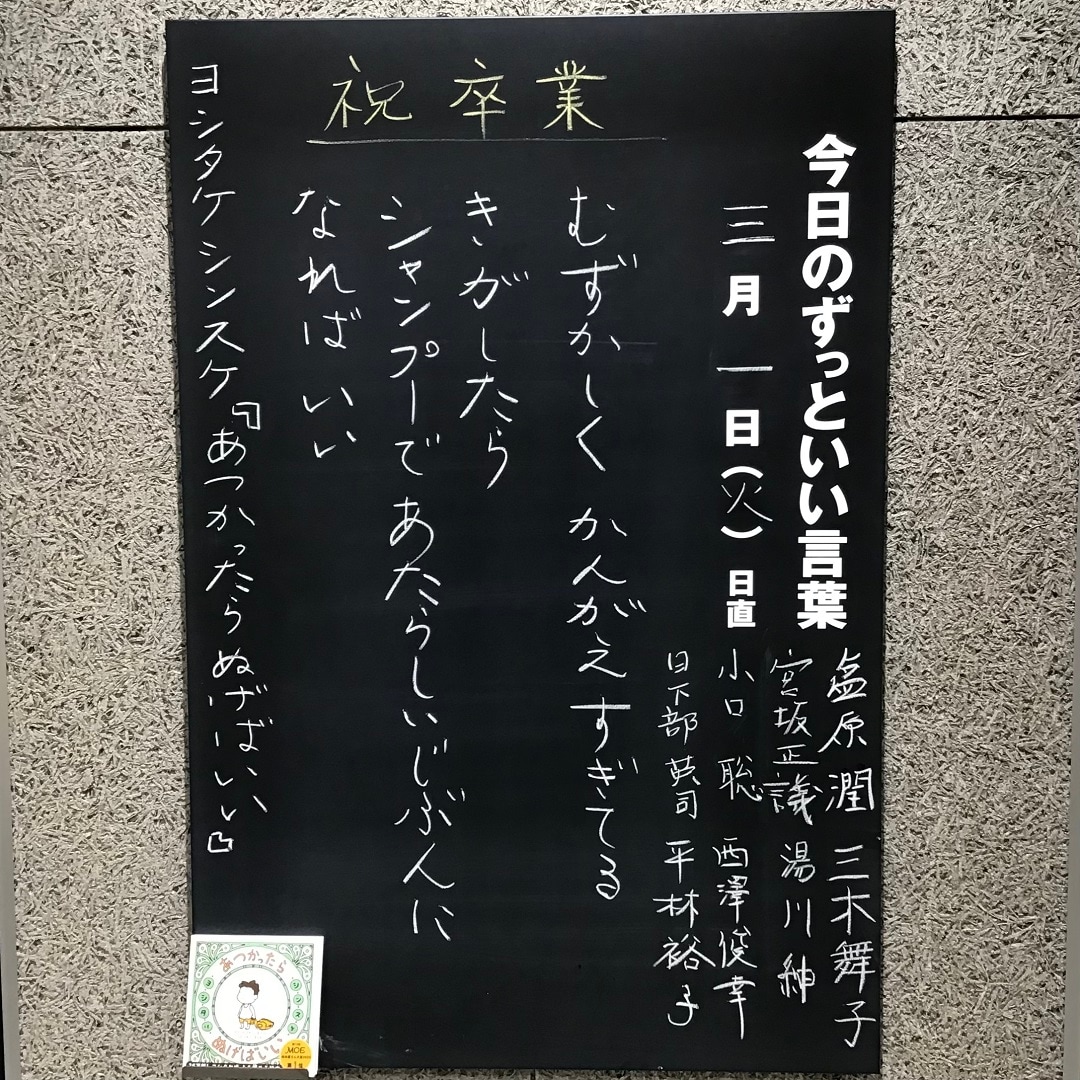 今日のずっといい言葉
塩原 潤 三木舞子
宮坂正議 湯川 紳
三月一日(火) 日直
小口 聡 西澤俊幸
日下部 英司 平林裕子
祝卒業
むずかしく かんがえすぎてる
きがしたら
シャンプーで あたらしいじぶんに
なれば いい
ヨシタケシンスケ『あつかったらぬげばいい』
あつかったら
ヨシタケ
シンスケ
ぬげばいい
MOE